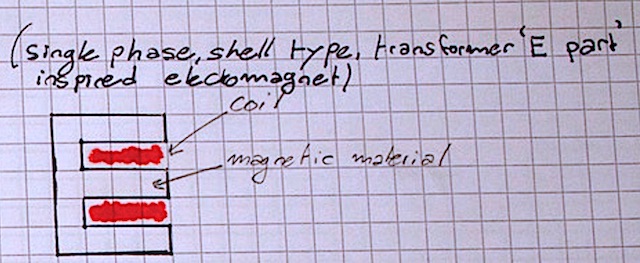 (single phase, shell type, transformer 'E part'
inspired electomagnet)
coil
magnetic material